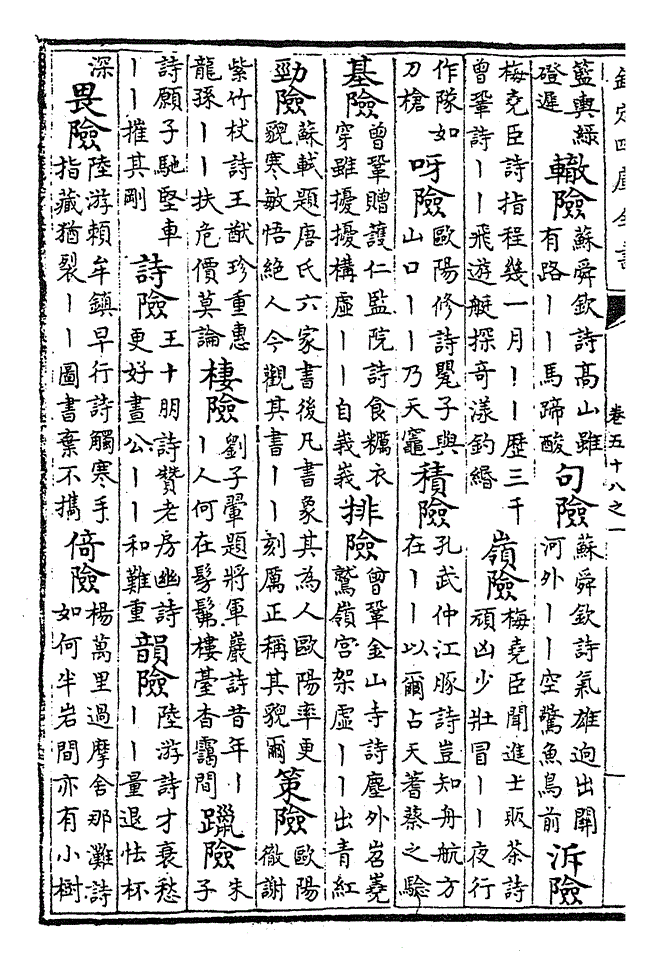 欽定四庫全書
卷五十八之一
籃輿緑
磴遲
轍險
蘇舜欽詩髙山雖
有路丨丨馬蹄酸
句險
蘇舜欽詩氣雄逈出闗
河外丨丨空驚魚鳥前
泝險
梅堯臣詩指程幾一月丨丨歴三千
曾鞏詩丨丨飛遊艇探奇漾釣緡
嶺險
梅堯臣聞進士販茶詩
頑凶少壯冒丨丨夜行
作隊如
刀槍
呀險
歐陽修詩甖子與
山口丨丨乃天竈
積險
孔武仲江豚詩豈知舟航方
在丨丨以爾占天蓍蔡之驗
基險
曾鞏贈護仁監院詩食糲衣
穿雖擾擾構虛丨丨自峩峩
排險
曾鞏金山寺詩塵外岧嶤
鷲嶺宫架虛丨丨出青紅
勁險
蘇軾題唐氏六家書後凡書象其為人歐陽率更
貌寒敏悟絶人今觀其書丨丨刻厲正稱其貌爾
策險
歐陽
徹謝
紫竹杖詩王猷珍重惠
龍孫丨丨扶危價莫論
棲險
劉子翬題將軍巖詩昔年丨
丨人何在髣髴樓臺杳靄間
躐險
朱
子
詩願子馳堅車
丨丨摧其剛
詩險
王十朋詩贊老房幽詩
更好晝公丨丨和難重
韻險
陸游詩才衰愁
丨丨量退怯杯
深
畏險
陸游頼牟鎮早行詩觸寒手
指藏猶裂丨丨圖書棄不攜
倚險
楊萬里過摩舍那灘詩
如何半岩間亦有小樹